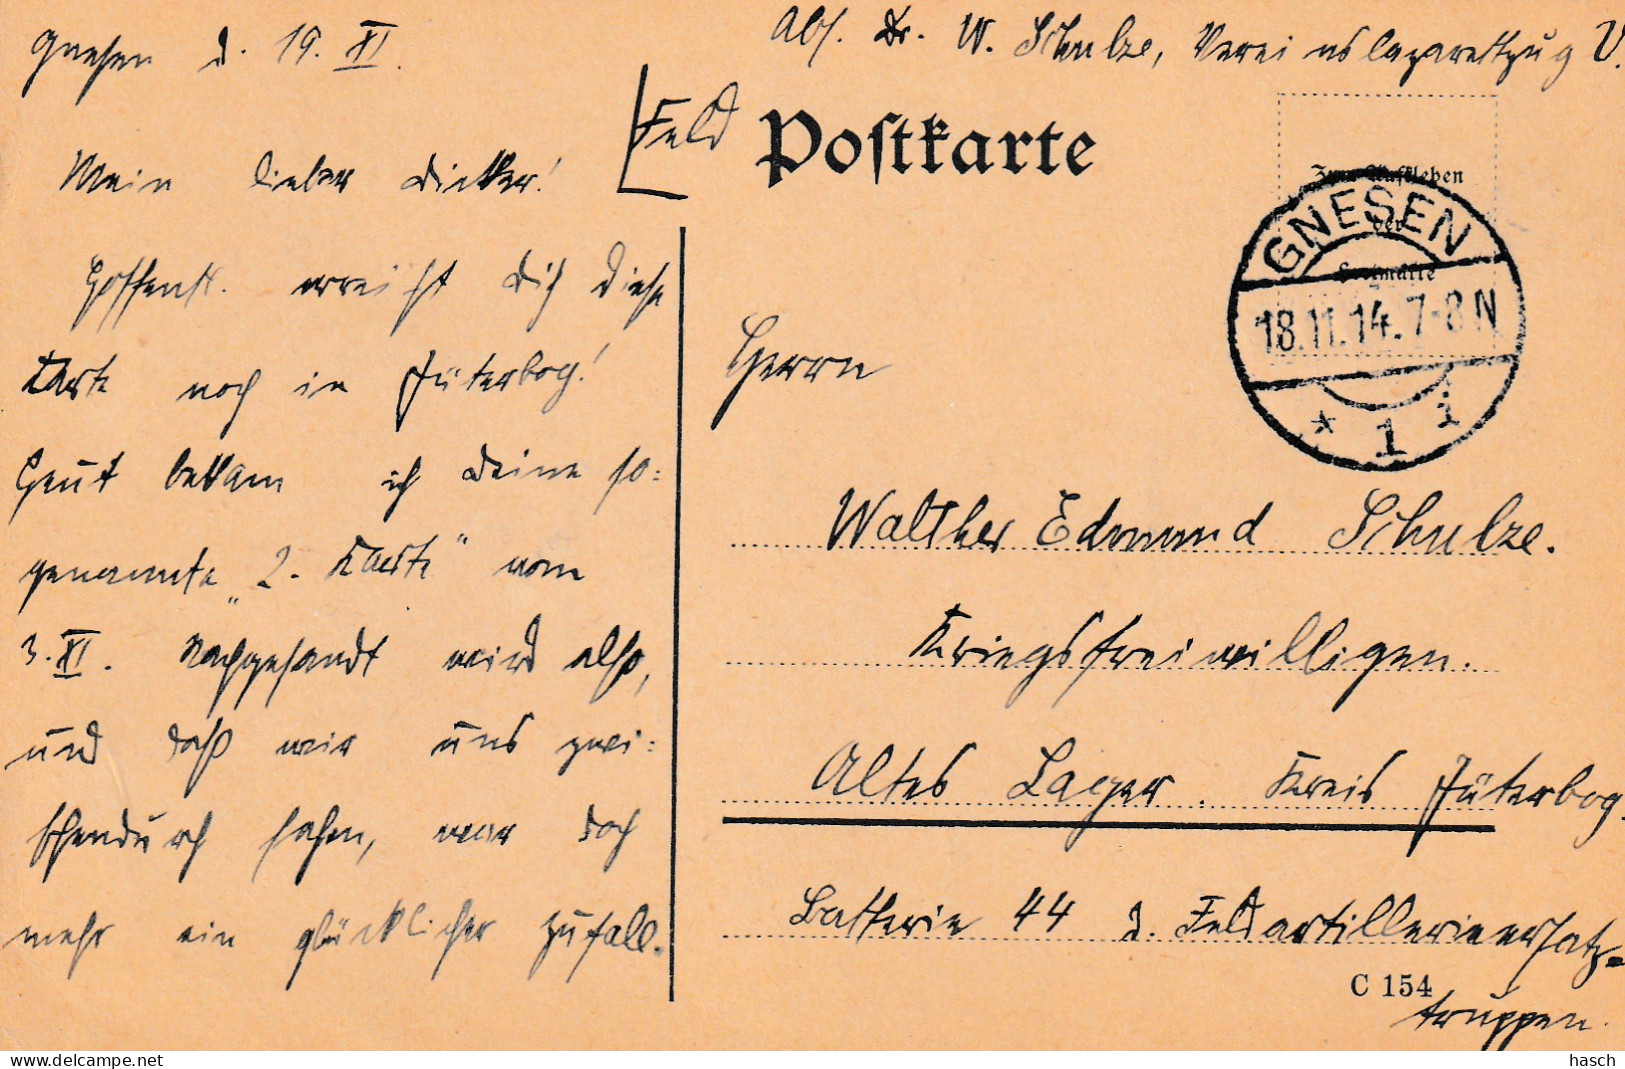 Gnesen d. 19. XI.
Mein lieber Dicker!
Hoffentl. erreicht Dich diese
Karte noch in Jüterbog!
Heut bekam ich Deine so:
genannte „2. Karte" vom
3. XI. Nachgesandt wird also,
und daß wir uns zwi:
schendurch sahen, war doch
mehr ein glücklicher Zufall.
Abs. Dr. W. Schulze, Vereinslazarettzug V.
Feld
Postkarte
Zum Aufkleben
der
Freimarke
GNESEN
18.11.14. 7-8 N
* 1 i
Herrn
Walther Edmund Schulze.
Kriegsfreiwilligen.
Altes Lager. Kreis Jüterbog.
Batterie 44 d. Feldartillerieersatz-
C 154
truppen.
hasch
delcampe.net